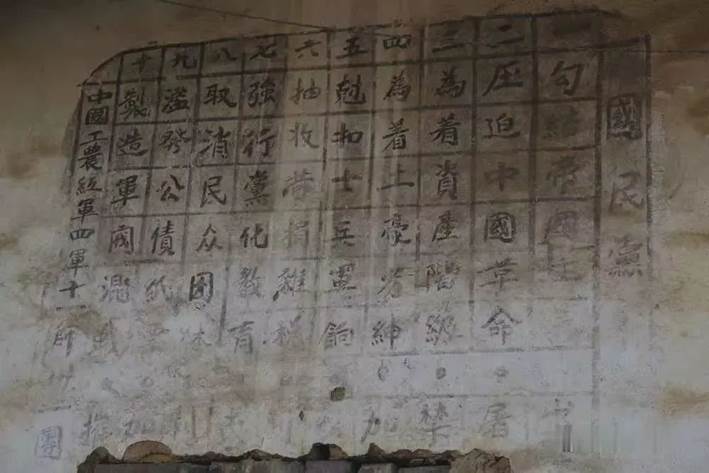 國民黨
一勾結帝國主
二压迫中國革命。屠
三為着資產階級。
四為着土豪劣紳。加
五尅扣士兵軍餉
六抽收苛捐雜稅
七強行黨化教育
八取消民众团体
九濫發公債
十製造軍閥混戰
中國工農紅軍四軍十一師卅一團